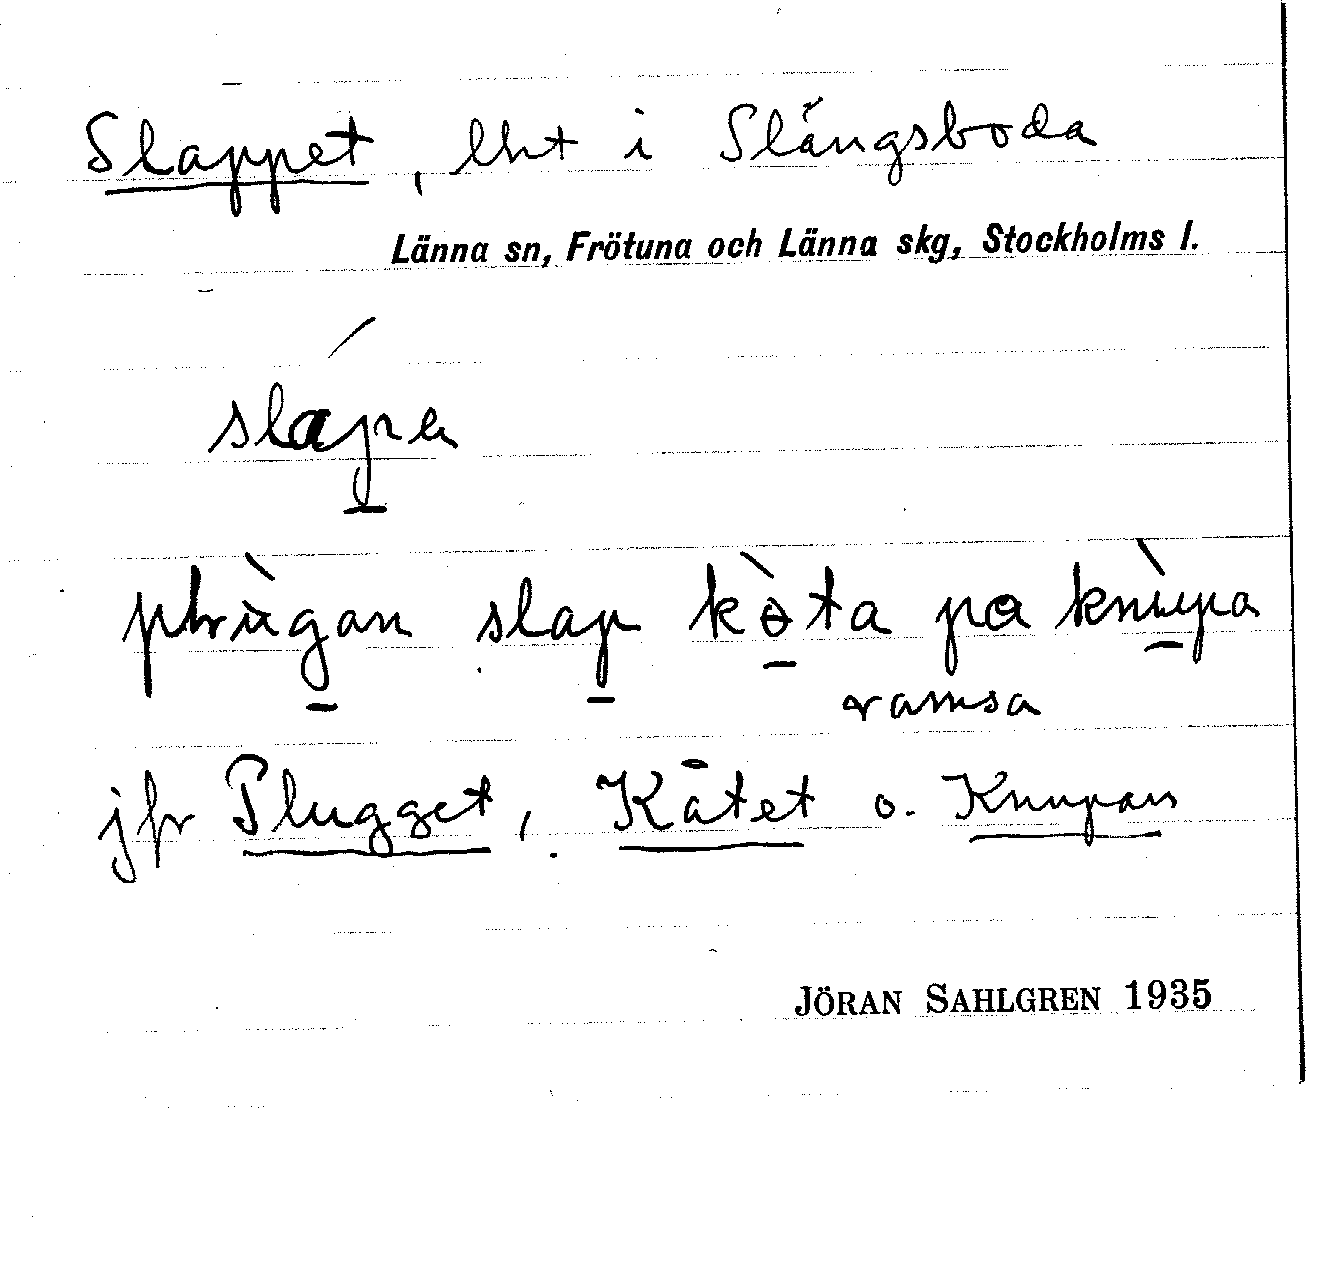 Slappet, lht i Slängsboda
Länna sn, Frötuna och Länna skg, Stockholms l.
slápa
plùgan slap kòta pa knùpa
ramsa
jfr Plugget, Kåtet o. Knupan
JÖRAN SAHLGREN 1935